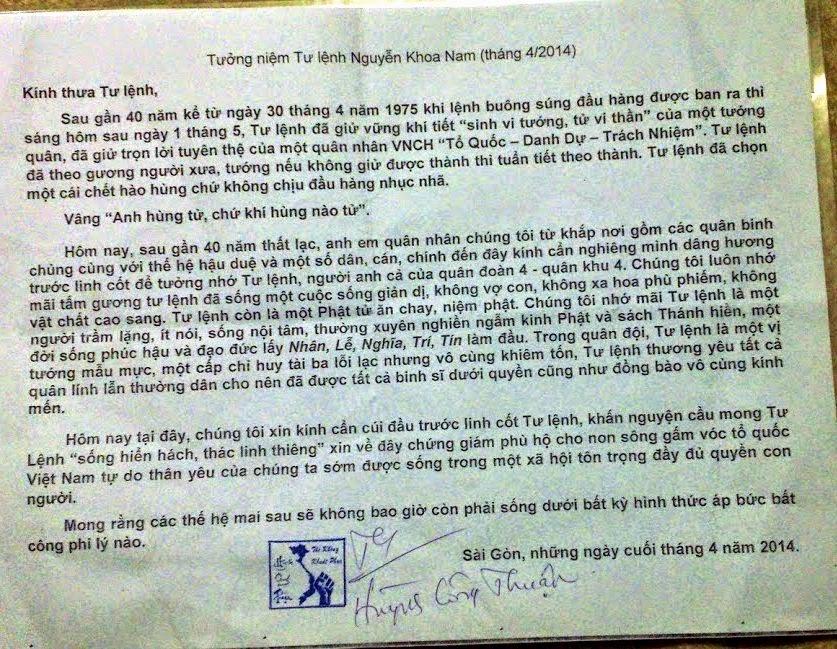 Tưởng niệm Tư lệnh Nguyễn Khoa Nam (tháng 4/2014)
Kính thưa Tư lệnh,
Sau gần 40 năm kể từ ngày 30 tháng 4 năm 1975 khi lệnh buông súng đầu hàng được ban ra thì
sáng hôm sau ngày 1 tháng 5, Tư lệnh đã giử vững khí tiết “sinh vi tướng, tử vi thần” của một tướng
quân, đã giử trọn lời tuyên thệ của một quân nhân VNCH “Tổ Quốc – Danh Dự – Trách Nhiệm”. Tư lệnh
đã theo gương người xưa, tướng nếu không giử được thành thì tuẩn tiết theo thành. Tư lệnh đã chọn
một cái chết hào hùng chứ không chịu đầu hàng nhục nhã.
Vâng “Anh hùng tử, chứ khí hùng nào tử”.
Hôm nay, sau gần 40 năm thất lạc, anh em quân nhân chúng tôi từ khắp nơi gồm các quân binh
chủng cùng với thế hệ hậu duệ và một số dân, cán, chính đến đây kính cẩn nghiêng mình dâng hương
trước linh cốt để tưởng nhớ Tư lệnh, người anh cả của quân đoàn 4 - quân khu 4. Chúng tôi luôn nhớ
mãi tấm gương tư lệnh đã sống một cuộc sống giản dị, không vợ con, không xa hoa phù phiếm, không
vật chất cao sang. Tư lệnh còn là một Phật tử ăn chay, niệm phật. Chúng tôi nhớ mãi Tư lệnh là một
người trầm lặng, ít nói, sống nội tâm, thường xuyên nghiền ngẫm kinh Phật và sách Thánh hiền, một
đời sống phúc hậu và đạo đức lấy Nhân, Lễ, Nghĩa, Trí, Tín làm đầu. Trong quân đội, Tư lệnh là một vị
tướng mẫu mực, một cấp chỉ huy tài ba lỗi lạc nhưng vô cùng khiêm tốn, Tư lệnh thương yêu tất cả
quân lính lẫn thường dân cho nên đã được tất cả binh sĩ dưới quyền cũng như đồng bào vô cùng kính
mến.
Hôm nay tại đây, chúng tôi xin kính cẩn cúi đầu trước linh cốt Tư lệnh, khấn nguyện cầu mong Tư
Lệnh “sống hiển hách, thác linh thiêng” xin về đây chứng giám phù hộ cho non sông gấm vóc tổ quốc
Việt Nam tự do thân yêu của chúng ta sớm được sống trong một xã hội tôn trọng đầy đủ quyền con
người.
Mong rằng các thế hệ mai sau sẽ không bao giờ còn phải sống dưới bất kỳ hình thức áp bức bất
công phi lý nào.
Sài Gòn, những ngày cuối tháng 4 năm 2014.
Huỳnh Công Thuận